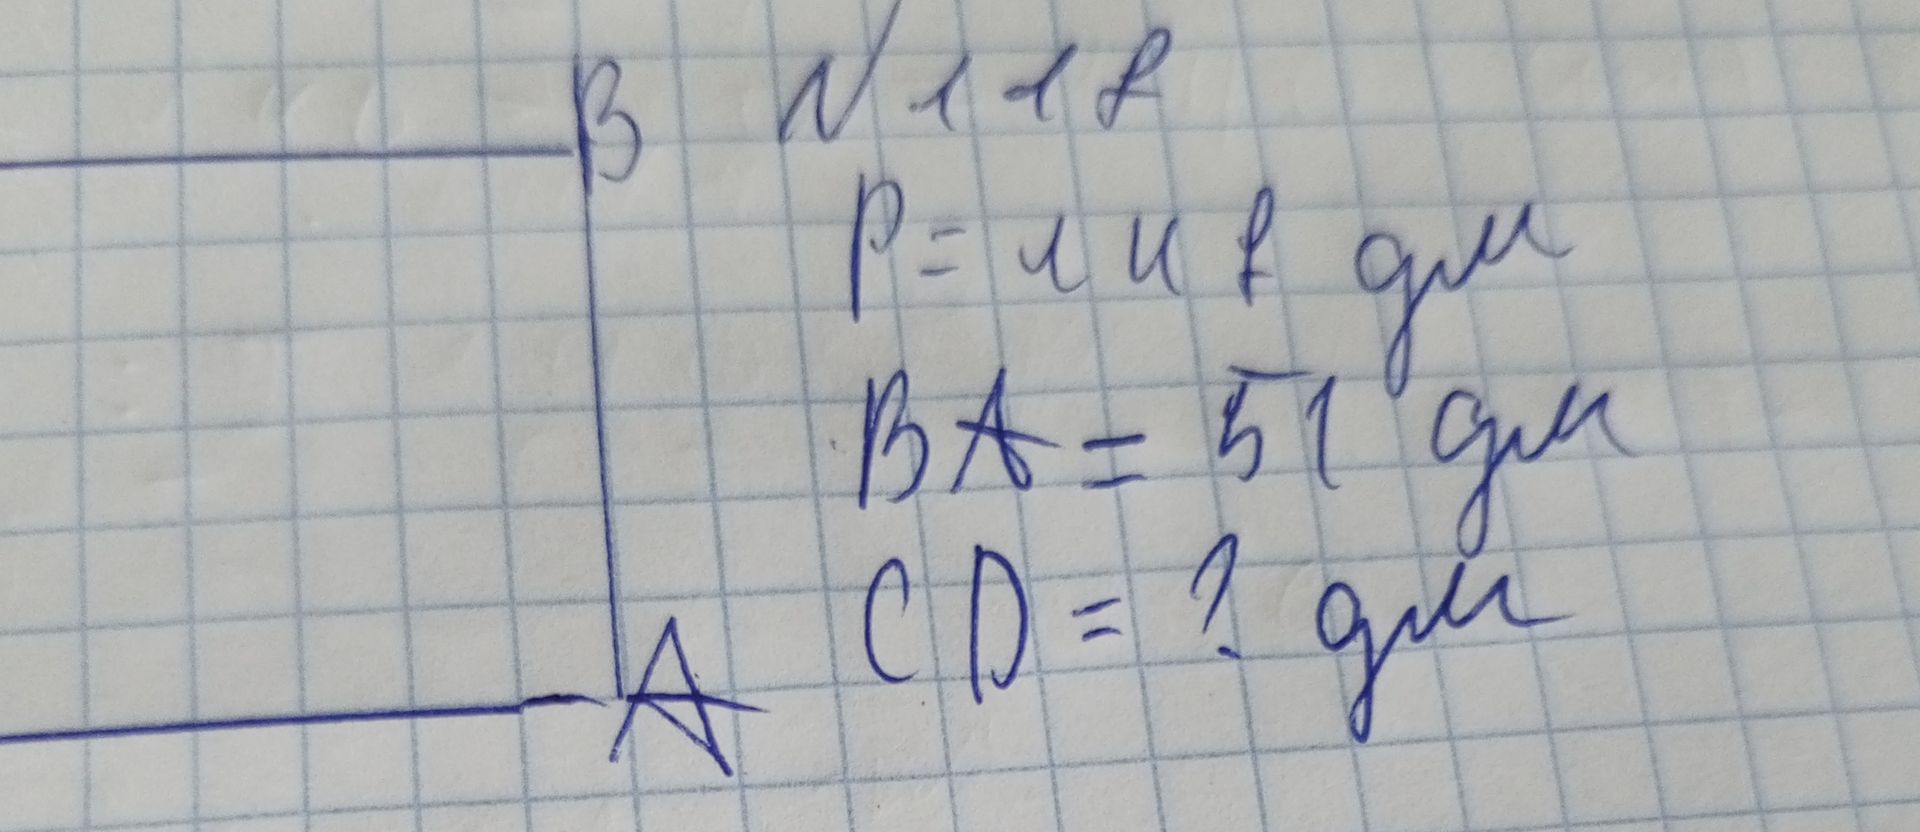 B
№ 118
P = 148 дм
BA = 51 дм
CD = ? дм
A